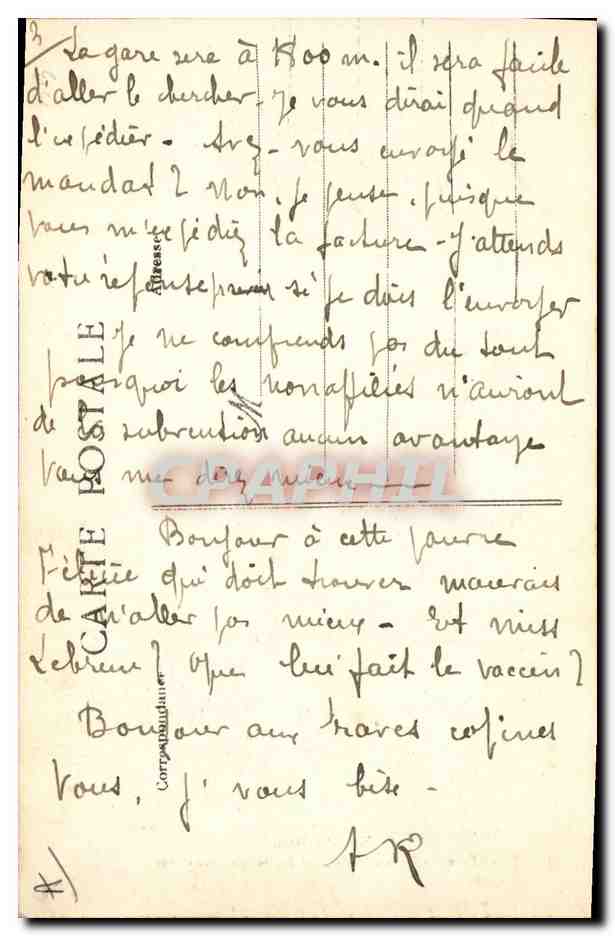 3
La gare sera à 1800 m. il sera facile
d'aller le chercher. Je vous dirai quand
l'expédier - Avez-vous envoyé le
mandat ? Non, je pense, puisque
vous m'expédiez la facture - J'attends
votre réponse pour si je dois l'envoyer
Je ne comprends pas du tout
pourquoi les non affiliés n'auront
de la subvention aucun avantage
Vous me direz mieux
Bonjour à cette pauvre
qui doit trouver mauvais
de n'aller pas mieux - Et miss
Lebreux ? Que lui fait le vaccin ?
Bonjour aux braves copines
Vous, j' vous bise -
AK
CARTE POSTALE
Correspondance
Adresse
CPAPHIL